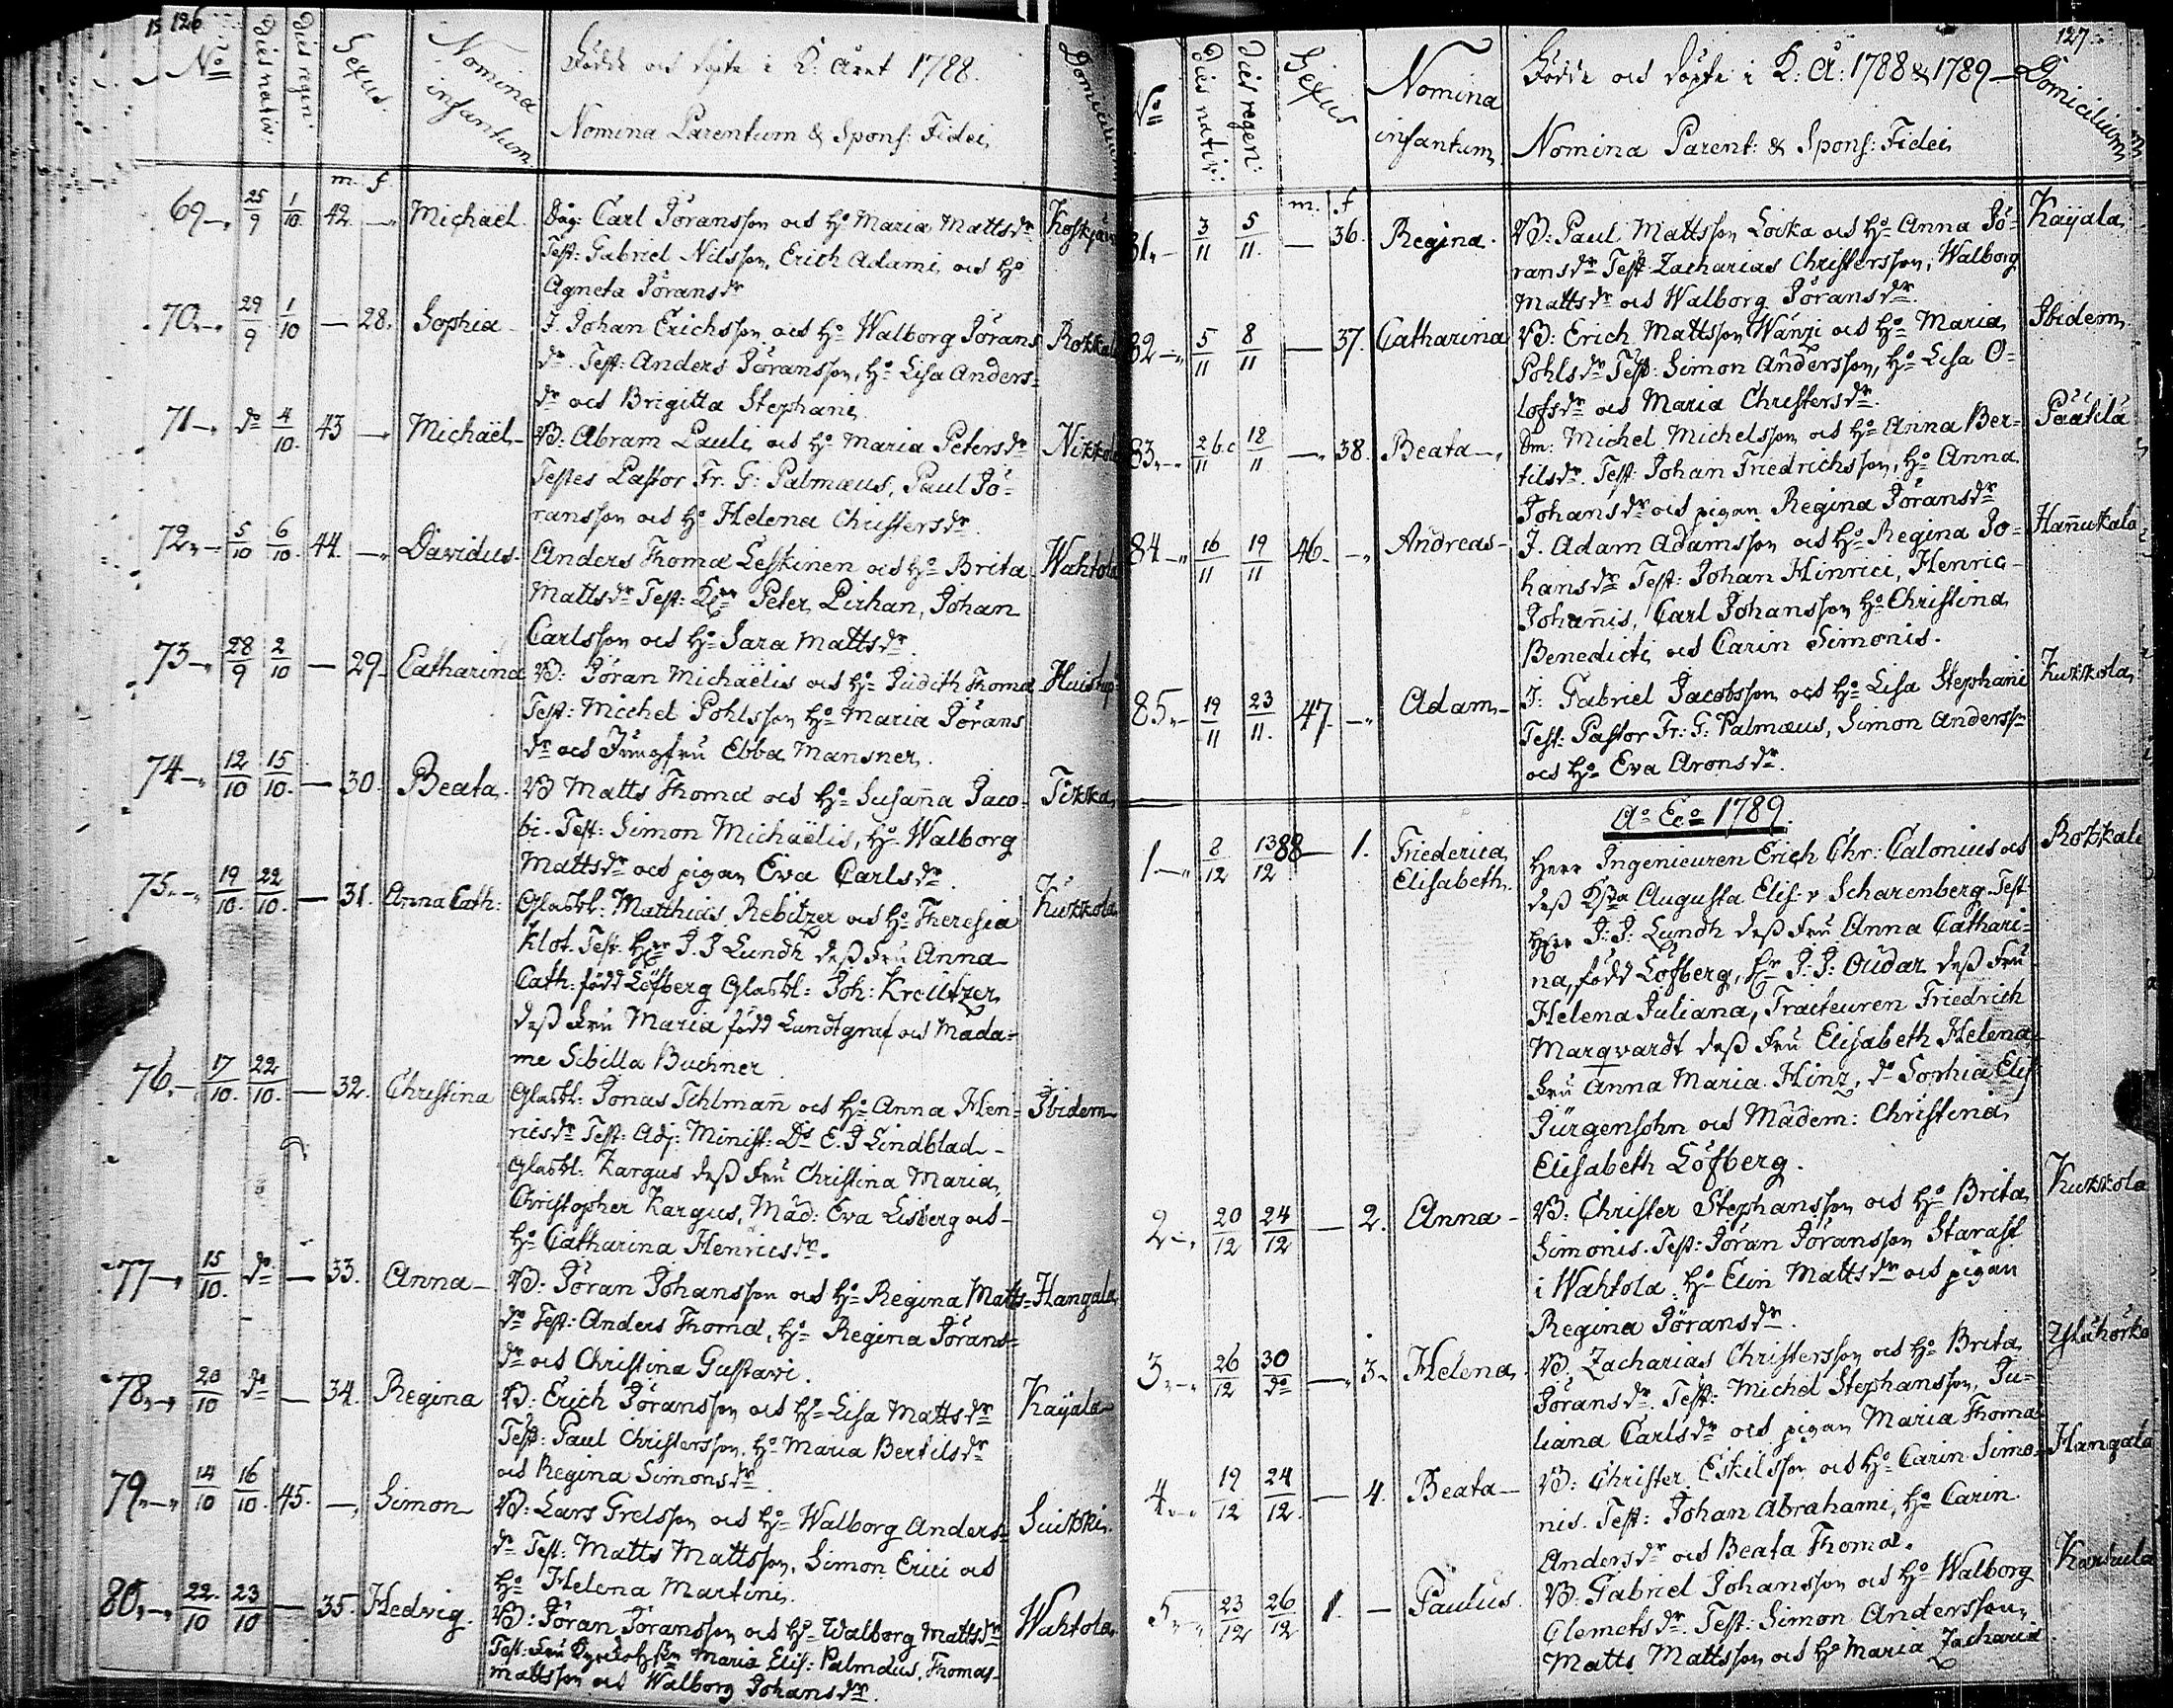 126
No
Dies nativ:
Dies regen:
Sexus.
Nomina infantum.
Födde och döpte i K: Året 1788.
Nomina Parentum & Spons: Fidei
m. f.
69 25/9 1/10 42 Michaël.
Carl Göransson och H: Maria Mattsdr
Test: Gabriel Nilsson, Erich Adami, och H:
Agneta Göransdr
70 29/9 1/10 28. Sophia
I. Johan Erichsson och H: Walborg Görans
dr. Test: Anders Göransson, H: Lisa Anders=
dr och Brigitta Stephani
71 do 4/10 43 Michaël
B: Abram Pauli och H: Maria Petersdr
Testes Pastor Fr. G: Palmæus, Paul Gö=
ransson och H: Helena Christersdr
72 5/10 6/10 44 Davidus
Anders Thomæ Leskinen och H: Brita Wahtola
Mattsdr Test: Peter Pirhan, Johan
Carlsson och H: Sara Mattsdr
73 28/9 2/10 29 Catharina
B: Göran Michaëlis och H: Judith Thomæ
Test: Michel Pohlsson H: Maria Görans
dr och Jungfru Ebba Mansner.
74 12/10 15/10 30. Beata
B Matts Thomæ och H: Susanna Jaco= Tikka
bi. Test: Simon Michaëlis, H: Walborg
Mattsdr och pigan Eva Carlsdr
75 19/10 22/10 31. Anna Cath:
Glasbl: Matthias Rebitzer och H: Theresia Kukkola
Klot. Test. Hr J. J Lundh dess fru Anna
Cath: född Löfberg Glasbl: Joh: Kreützer
dess fru Maria född Lundtgraf och Mada=
me Sibilla Buchner
76. 17/10 22/10 32. Christina
Glasbl: Jonas Tihlmann och H: Anna Hen= Ibidem
ricsdr Test: Adj: Minist: Ds E. J Lindblad
Glasbl: Kargus dess fru Christina Maria
Christopher Kargus, Mad: Eva Lisberg och
H: Catharina Henricsdr.
77 15/10 do 33. Anna
B: Göran Johansson och H: Regina Matts= Hangala
dr Test: Anders Thomæ, H: Regina Görans=
dr och Christina Gustavi.
78 20/10 do 34. Regina
B: Erich Göransson och H: Lisa Mattsdr Kaÿala
Test: Paul Christersson, H: Maria Bertilsdr
och Regina Simonsdr
79 14/10 16/10 45. Simon
B: Lars Grelsson och H: Walborg Anders= Suikki
dr Test: Matts Mattsson, Simon Erici och
H: Helena Martini
80 22/10 23/10 35. Hedvig.
B: Göran Göransson och H: Walborg Mattsdr Wahtola
Test: Fru Maria Elis: Palmæus, Thomas
Mattsson och Walborg Johansdr.
127
No
Dies nativ:
Dies regen:
Sexus
Nomina infantum
Födde och döpte i K: A: 1788 & 1789
Nomina Parent: & Spons: Fidei
Domicilium
m. f
81 3/11 5/11 36. Regina.
B: Paul Mattsson Locka och H: Anna Gö= Kaÿala
ransdr Test Zacharias Christersson, Walborg
Mattsdr och Walborg Göransdr.
82 5/11 8/11 37. Catharina
B: Erich Mattsson Wänzi och H: Maria Ibidem
Pohlsdr Test: Simon Andersson, H: Lisa O=
lofsdr och Maria Christersdr.
83 18/11 38. Beata
Michel Michelsson och H: Anna Ber= Päätilä
tilsdr. Test: Johan Friedrichsson, H: Anna
Johansdr och pigan Regina Göransdr
84 16/11 19/11 46. Andreas
I. Adam Adamsson och H: Regina Jo= Hannukala
hansdr Test: Johan Hinrici, Henric
Johannis, Carl Johansson H: Christina
Benedicti och Carin Simonis.
85 19/11 23/11 47. Adam
I: Gabriel Jacobsson och H: Lisa Stephani Kukkola
Test: Pastor Fr: G: Palmæus, Simon Anderss:
och H: Eva Aronsdr.
Ao Eco 1789.
1 8/12 88 13/12 1. Friederica Elisabeth
Herr Ingenieuren Erich Chr: Calonius och Rokkala
dess Augusta Elis: v Scharenberg. Test
Herr J: J: Lundh dess fru Anna Cathari=
na, född Löfberg, Hr J: J: Oudar dess fru
Helena Juliana, Tracteuren Friedrich
Marqvardt dess fru Elisabeth Helena
fru Anna Maria Hinz, do Sophia Elis
Jürgensohn och Madem: Christina
Elisabeth Löfberg.
2 20/12 24/12 2. Anna
B: Christer Stephansson och H: Brita Kukkola
Simonis. Test: Göran Göransson Starast
i Wahtola, H: Elin Mattsdr och pigan
Regina Göransdr.
3 26/12 30/do 3. Helena
B: Zacharias Christersson och H: Brita
Göransdr. Test: Michel Stephansson, Ju=
liana Carlsdr och pigan Maria Thomæ
4 19/12 24/12 4. Beata
B: Christer Eskilsson och H: Carin Simo= Hangala
nis. Test: Johan Abrahami, H: Carin
Andersdr och Beata Thomæ.
5 23/12 26/12 1. Paulus.
B: Gabriel Johansson och H: Walborg
Clemetsdr. Test: Simon Andersson,
Matts Mattsson och H: Maria Zachariæ